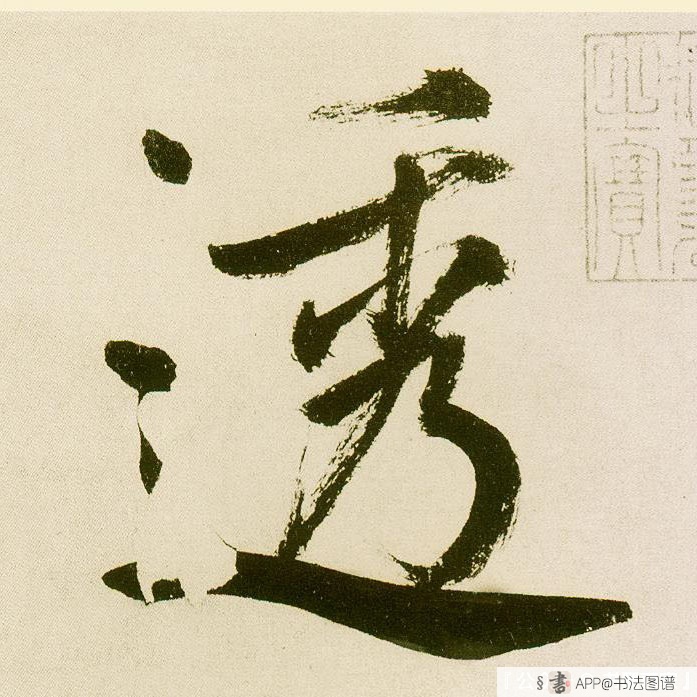 透
書 APP@书法图谱